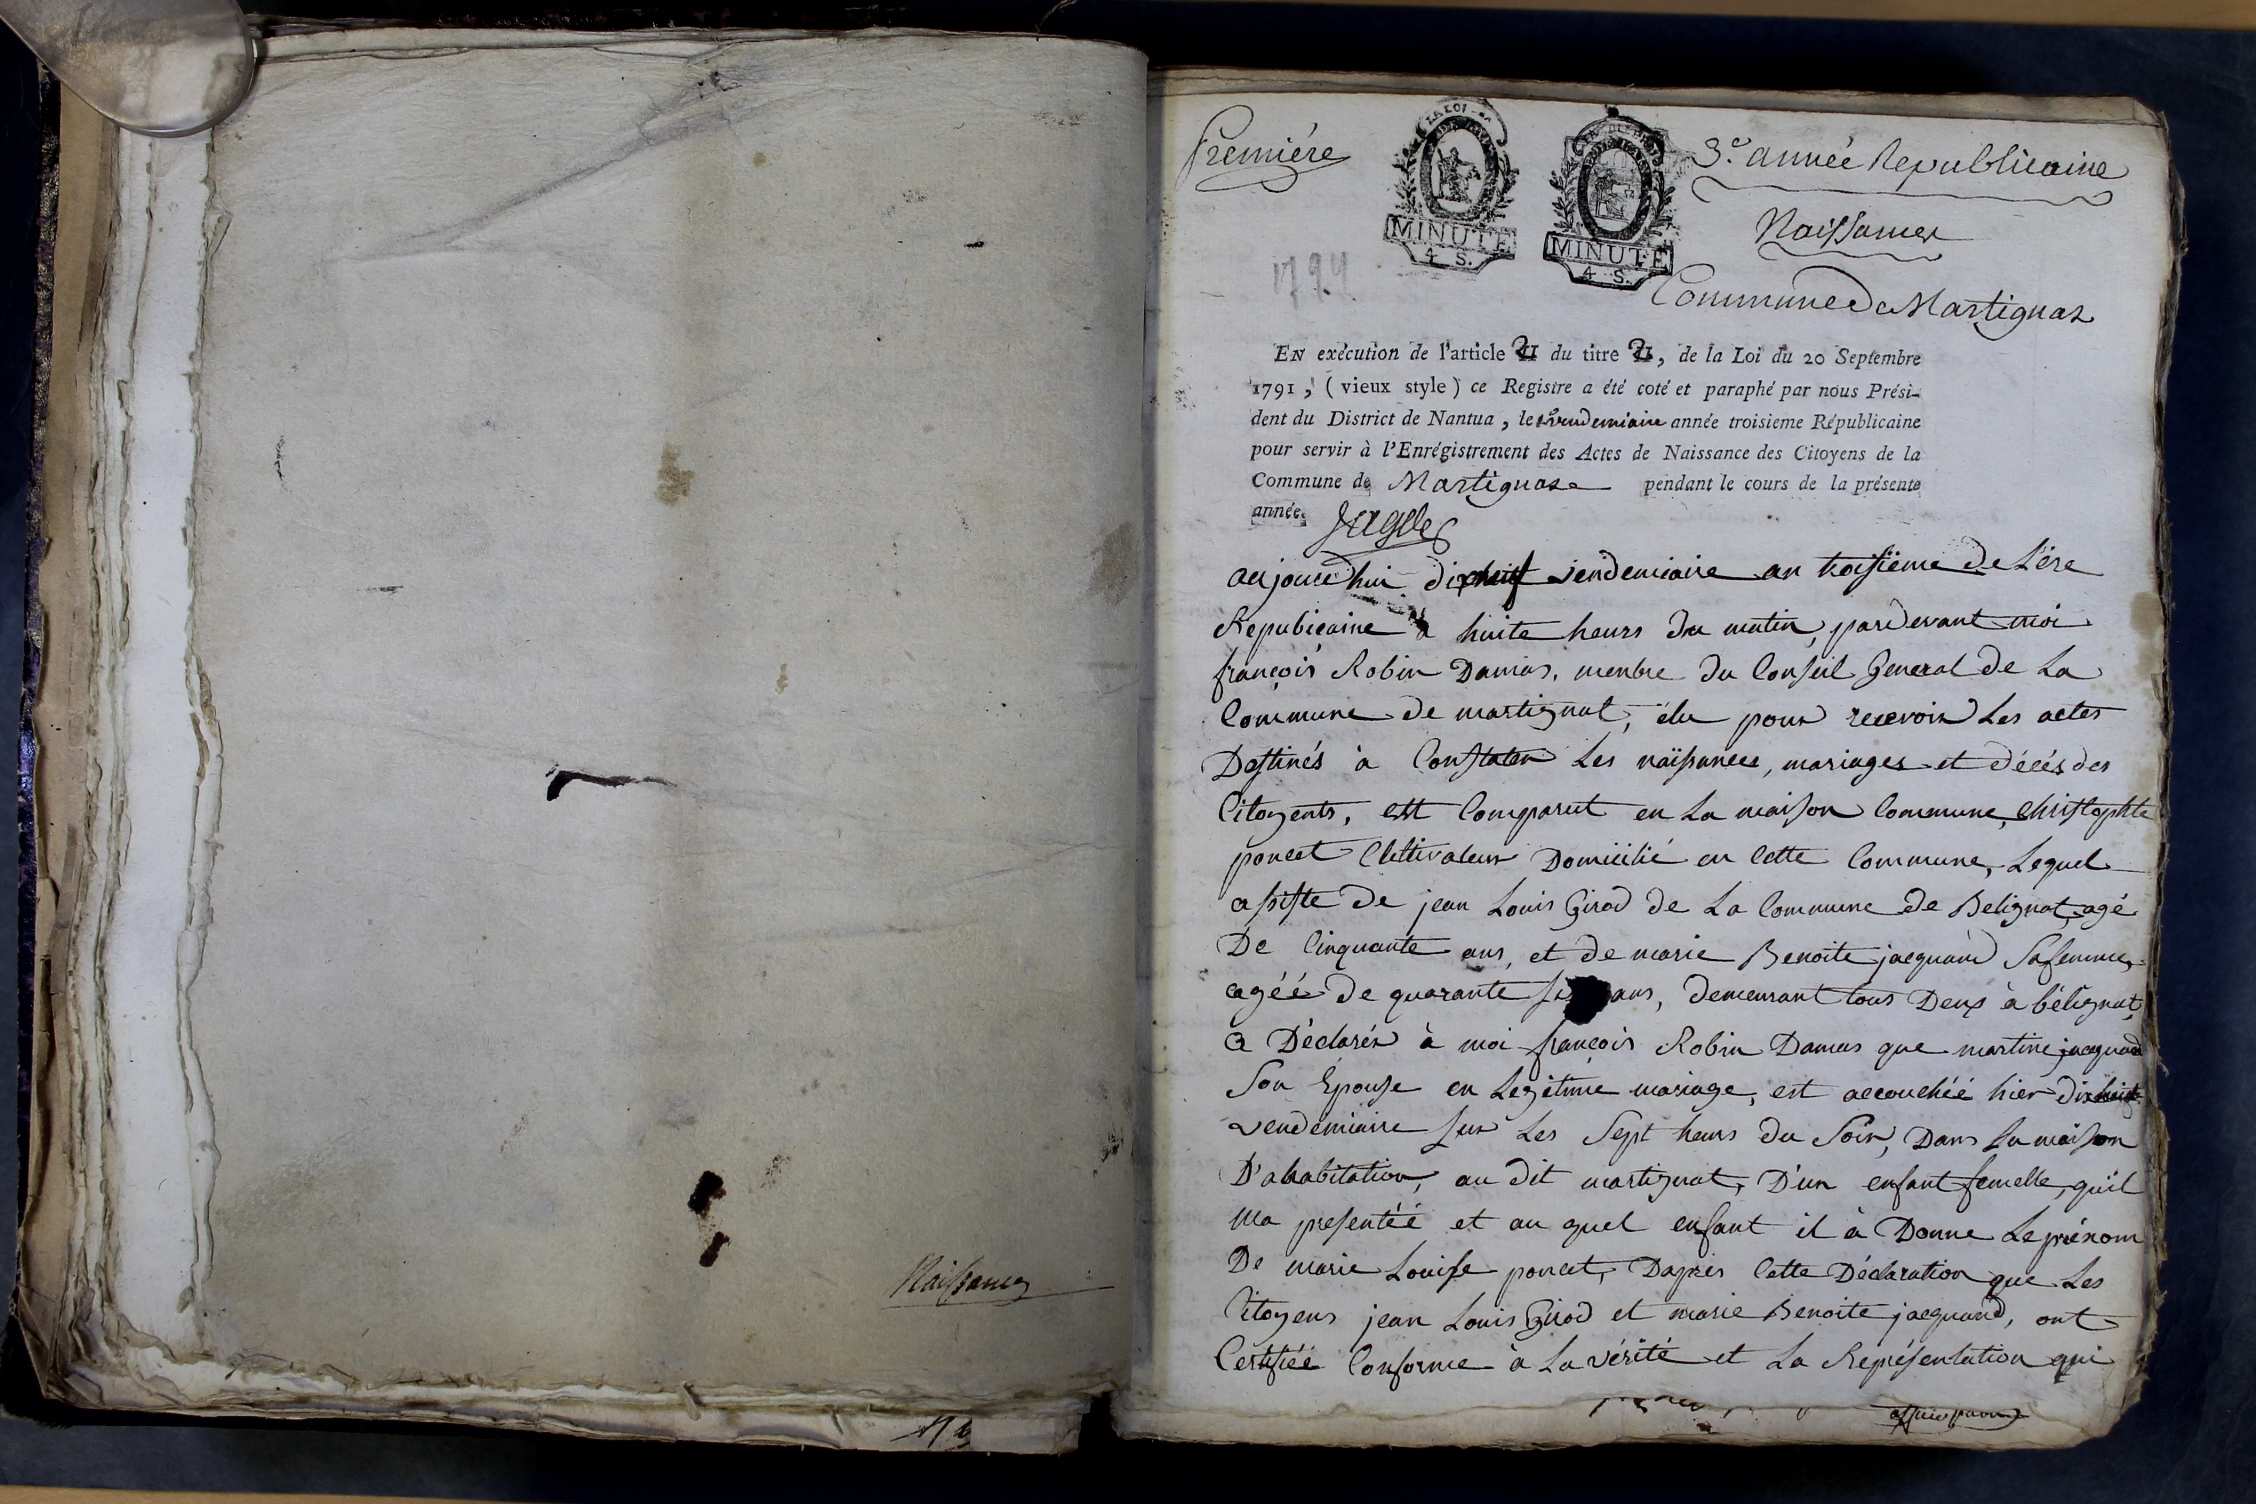 Naissances
Premiére
3.e année Republicaine
Naissances
1794
MINUTE
4 S.
MINUTE
4 S.
Commune de Martignaz
EN exécution de l'article II du titre II, de la Loi du 20 Septembre
1791, (vieux style) ce Registre a été coté et paraphé par nous Prési-
dent du District de Nantua, le vendemiaire année troisieme Républicaine
pour servir à l'Enrégistrement des Actes de Naissance des Citoyens de la
Commune de Martignaz pendant le cours de la présente
année.
aujourdhui dixneuf vendemiaire an troisiéme de L'ére
Republicaine à huite heurs du matin, pardevant moi
françois Robin Damas, menbre du Conseil General de La
Commune de martignat, élu pour recevoir Les actes
Destinés à Constater Les naissances, mariages et décés des
Citoyents, est Comparut en La maison Commune, Christophte
poncet Cultivateur Domicilié en Cette Commune, Lequel
assiste de jean Louis Girod de La Commune de Belignat, agé
De Cinquante ans, et de marie Benoite jacquand Safemme,
agéé de quarante ans, demeurant tous Deux à bélignat,
a Déclarér à moi françois Robin Damas que martine jacquand
Son Epouse en Legitime mariage, est accouchéé hier dixhuit
vendemiaire sur Les Sept heurs du Soir, Dans sa maison
D'ahabitation, au dit martignat, D'un enfant femelle, qu'il
Ma presentéé et au quel enfant il à Donne Le prénom
De marie Louise poncet, Daprés Cette Déclaration que Les
Citoyens jean Louis Girod et marie Benoite jacquand, ont
Certifiéé Conforme à La vérité et La Représentation qui